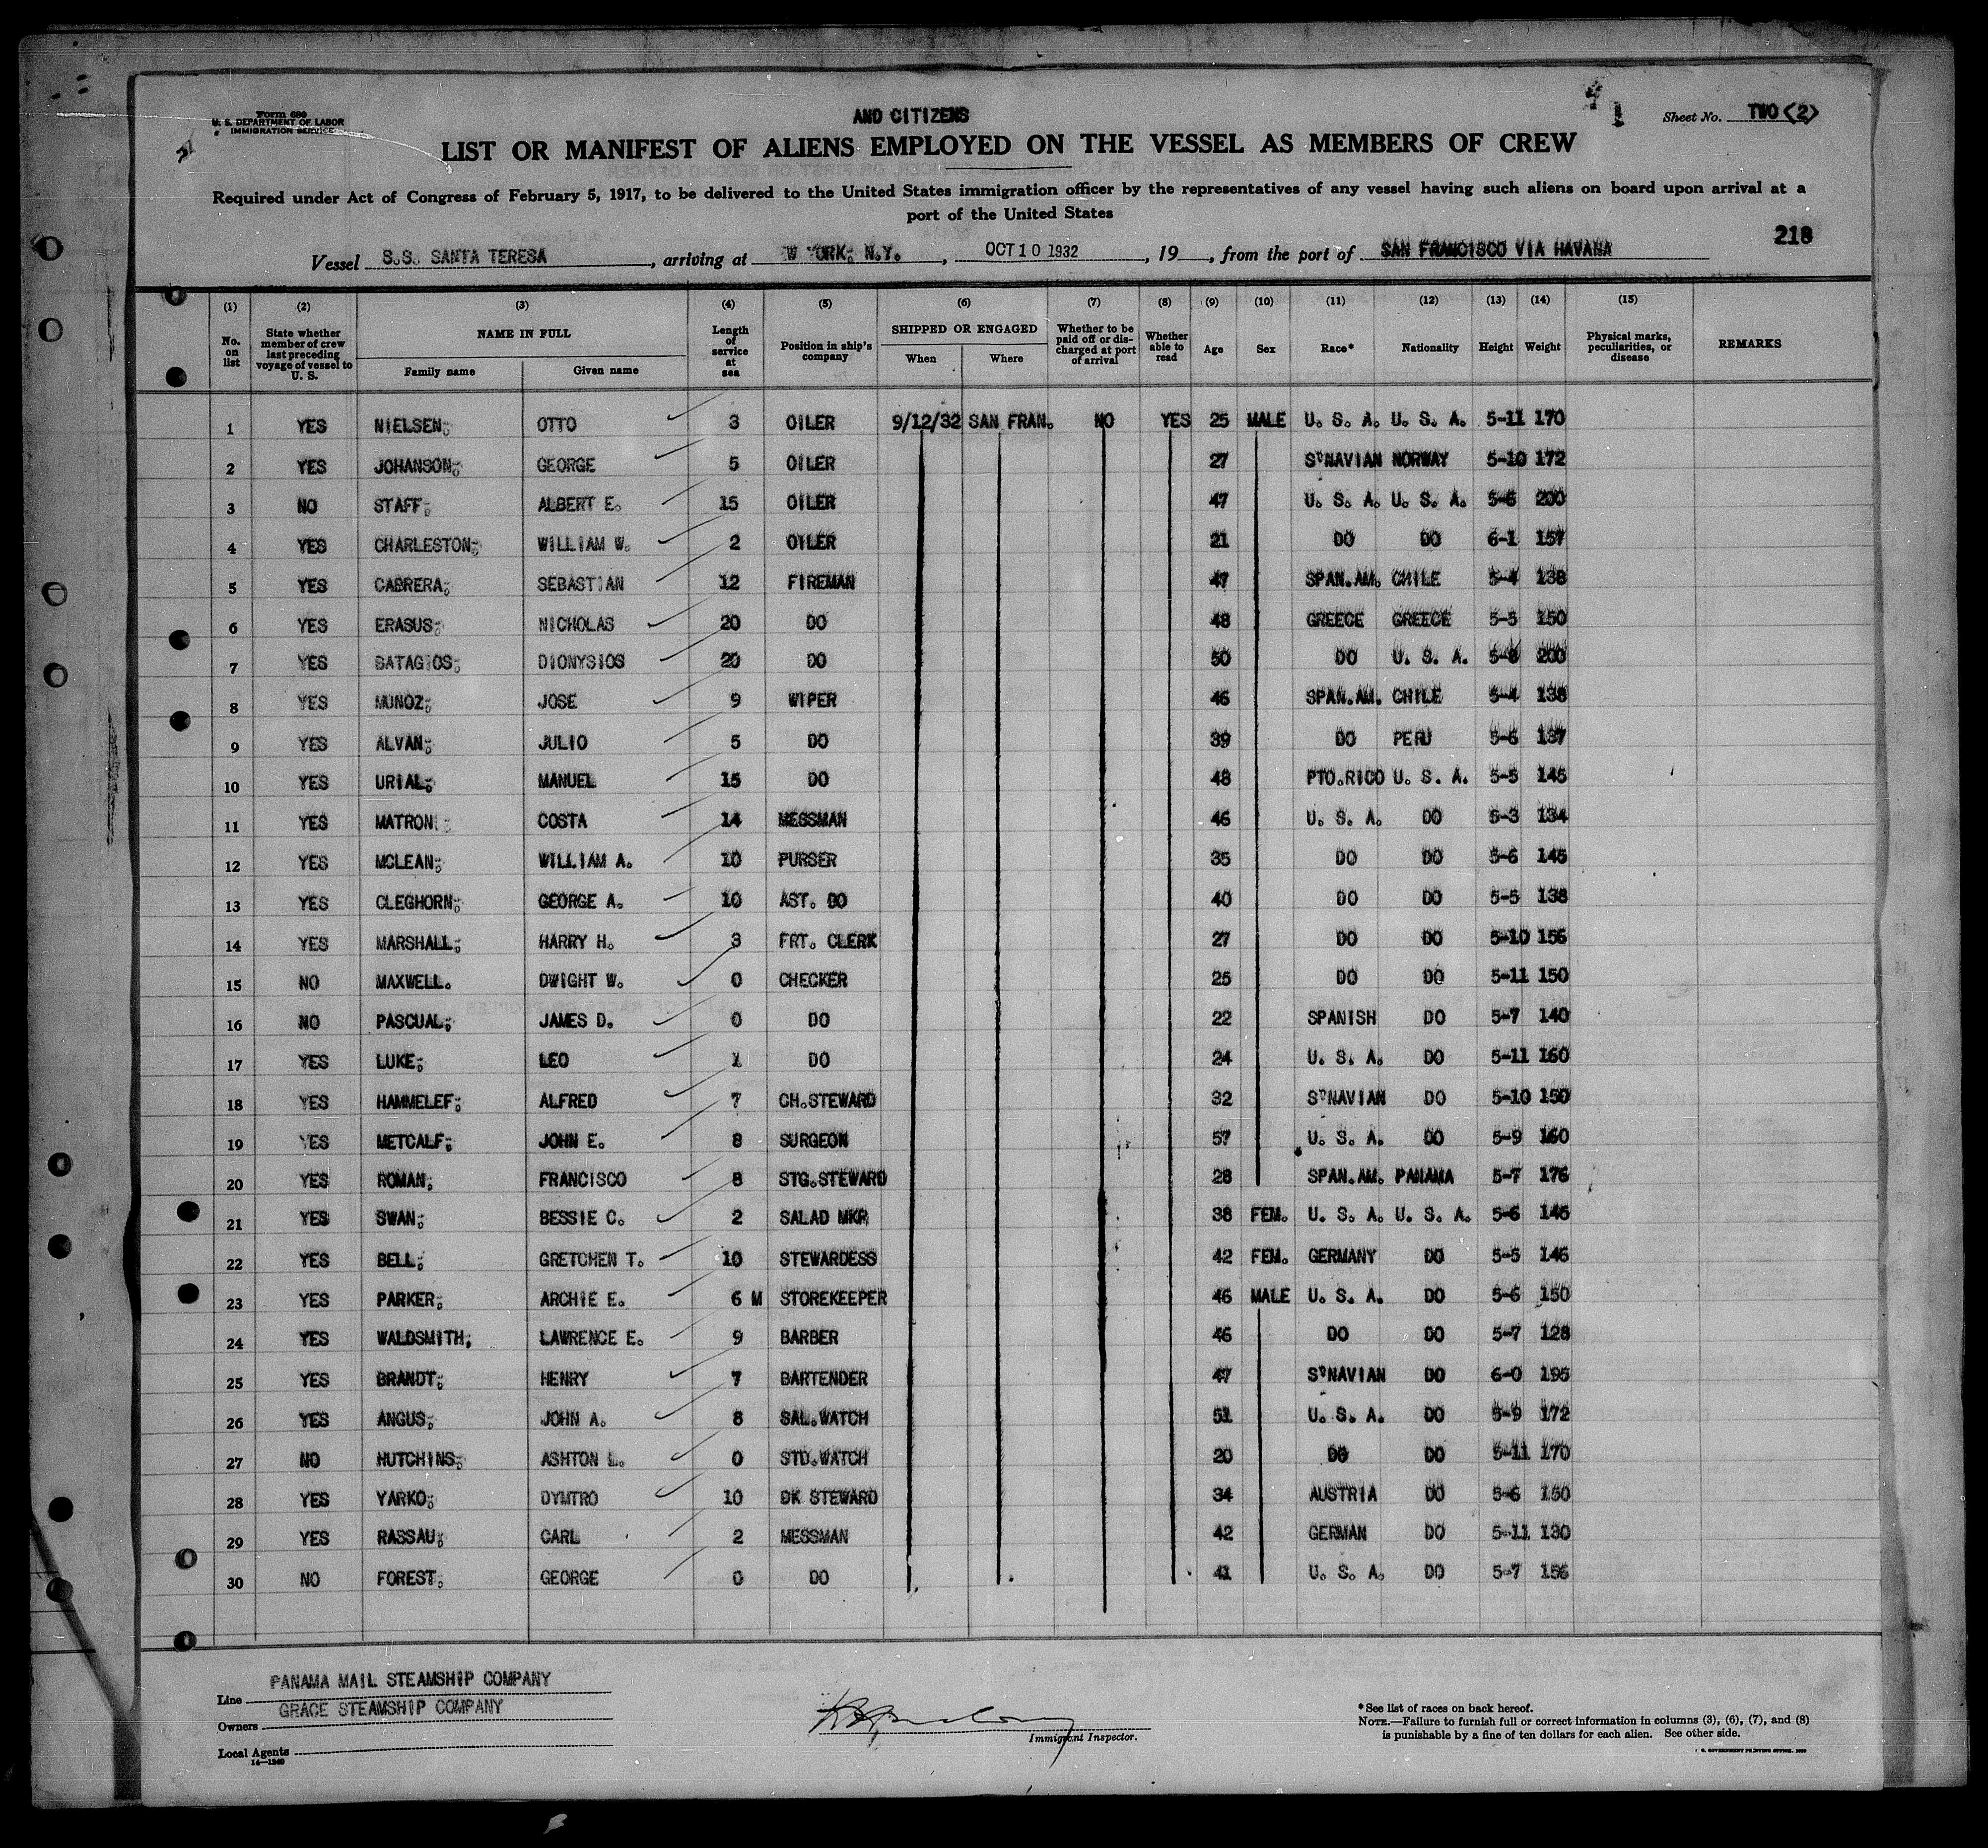 Form 680
U. S. DEPARTMENT OF LABOR
IMMIGRATION SERVICE
AND CITIZENS
Sheet No. TWO (2)
LIST OR MANIFEST OF ALIENS EMPLOYED ON THE VESSEL AS MEMBERS OF CREW
Required under Act of Congress of February 5, 1917, to be delivered to the United States immigration officer by the representatives of any vessel having such aliens on board upon arrival at a
port of the United States
218
Vessel S.S. SANTA TERESA, arriving at W YORK; N.Y., OCT 10 1932, 19, from the port of SAN FRANCISCO VIA HAVANA
(1) (2) (3) (4) (5) (6) (7) (8) (9) (10) (11) (12) (13) (14) (15)
No. on list State whether member of crew last preceding voyage of vessel to U. S. NAME IN FULL Family name Given name Length of service at sea Position in ship's company SHIPPED OR ENGAGED When Where Whether to be paid off or discharged at port of arrival Whether able to read Age Sex Race* Nationality Height Weight Physical marks, peculiarities, or disease REMARKS
1 YES NIELSEN; OTTO 3 OILER 9/12/32 SAN FRAN. NO YES 25 MALE U. S. A. U. S. A. 5-11 170
2 YES JOHANSON; GEORGE 5 OILER 27 S'NAVIAN NORWAY 5-10 172
3 NO STAFF; ALBERT E. 15 OILER 47 U. S. A. U. S. A. 5-6 200
4 YES CHARLESTON; WILLIAM W. 2 OILER 21 DO DO 6-1 157
5 YES CABRERA; SEBASTIAN 12 FIREMAN 47 SPAN.AM. CHILE 5-4 138
6 YES ERASUS; NICHOLAS 20 DO 48 GREECE GREECE 5-5 150
7 YES BATAGIOS; DIONYSIOS 20 DO 50 DO U. S. A. 200
8 YES MUNOZ; JOSE 9 WIPER 46 SPAN.AM. CHILE 5-4 138
9 YES ALVAN; JULIO 5 DO 39 DO PERU 5-6 137
10 YES URIAL; MANUEL 15 DO 48 PTO.RICO U. S. A. 5-5 145
11 YES MATRONI; COSTA 14 MESSMAN 46 U. S. A. DO 5-3 134
12 YES MCLEAN; WILLIAM A. 10 PURSER 35 DO DO 5-6 145
13 YES CLEGHORN; GEORGE A. 10 AST. DO 40 DO DO 5-5 138
14 YES MARSHALL; HARRY H. 3 FRT. CLERK 27 DO DO 5-10 156
15 NO MAXWELL. DWIGHT W. 0 CHECKER 25 DO DO 5-11 150
16 NO PASCUAL; JAMES D. 0 DO 22 SPANISH DO 5-7 140
17 YES LUKE; LEO 1 DO 24 U. S. A. DO 5-11 160
18 YES HAMMELEF; ALFRED 7 CH.STEWARD 32 S'NAVIAN DO 5-10 150
19 YES METCALF; JOHN E. 8 SURGEON 57 U. S. A. DO 5-9 160
20 YES ROMAN; FRANCISCO 8 STG.STEWARD 28 SPAN.AM. PANAMA 5-7 176
21 YES SWAN; BESSIE C. 2 SALAD MKR 38 FEM. U. S. A. U. S. A. 5-6 145
22 YES BELL; GRETCHEN T. 10 STEWARDESS 42 FEM. GERMANY DO 5-5 146
23 YES PARKER; ARCHIE E. 6 M STOREKEEPER 46 MALE U. S. A. DO 5-6 150
24 YES WALDSMITH; LAWRENCE E. 9 BARBER 46 DO DO 5-7 128
25 YES BRANDT; HENRY 7 BARTENDER 47 S'NAVIAN DO 6-0 195
26 YES ANGUS; JOHN A. 8 SAL.WATCH 51 U. S. A. DO 5-9 172
27 NO HUTCHINS; ASHTON L. 0 STD.WATCH 20 DO DO 5-11 170
28 YES YARKO; DYMTRO 10 DK STEWARD 34 AUSTRIA DO 5-6 150
29 YES RASSAU; CARL 2 MESSMAN 42 GERMAN DO 5-11 130
30 NO FOREST; GEORGE 0 DO 41 U. S. A. DO 5-7 156
Line PANAMA MAIL STEAMSHIP COMPANY
Owners GRACE STEAMSHIP COMPANY
Local Agents
14—1240
Immigrant Inspector.
*See list of races on back hereof.
NOTE.—Failure to furnish full or correct information in columns (3), (6), (7), and (8)
is punishable by a fine of ten dollars for each alien. See other side.